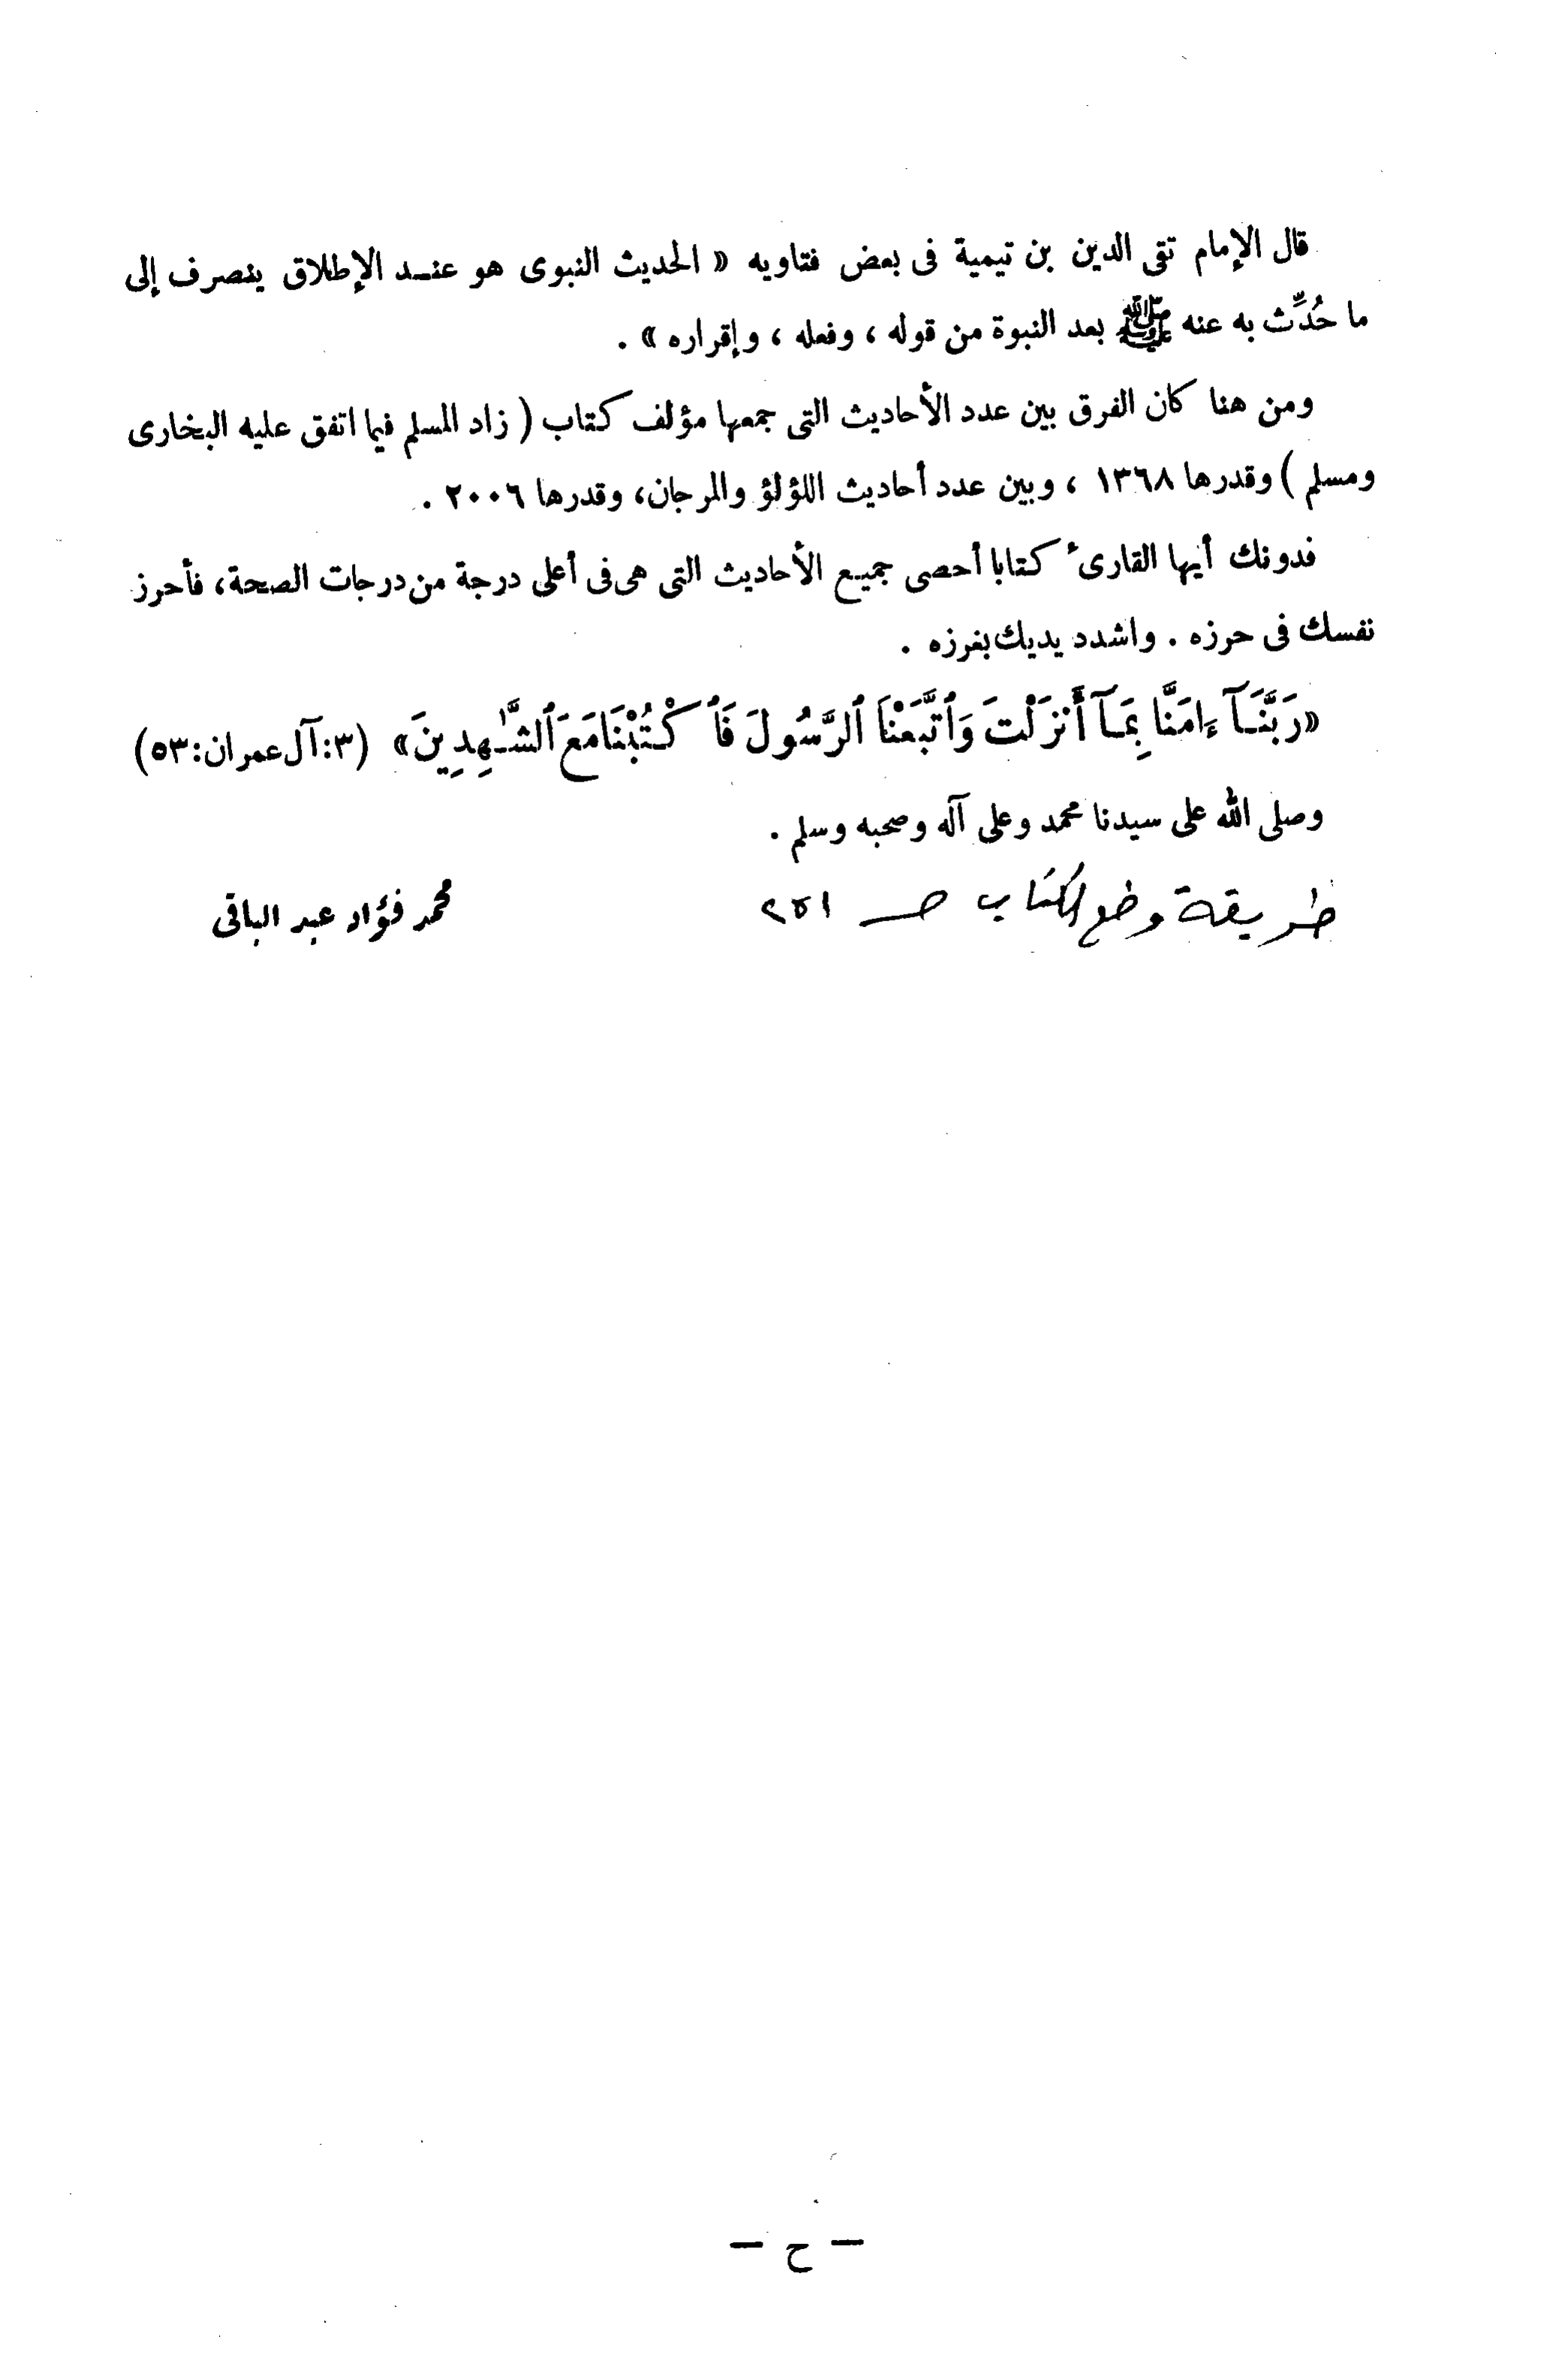 قال الإمام تقى الدين بن تيمية فى بعض فتاويه « الحديث النبوى هو عنـد الإطلاق ينصرف إلى
ما حُدِّث به عنه ﷺ بعد النبوة من قوله ، وفعله ، وإقراره » .
ومن هنا كان الفرق بين عدد الأحاديث التى جمعها مؤلف كتاب ( زاد المسلم فيما اتفق عليه البخارى
ومسلم ) وقدرها ١٣٦٨ ، وبين عدد أحاديث اللؤلؤ والمرجان، وقدرها ٢٠٠٦ .
فدونك أيها القارىء كتابا أحصى جميع الأحاديث التى هى فى أعلى درجة من درجات الصحة، فأحرز
نفسك فى حرزه . واشدد يديك بغرزه .
«رَبَّنَآ ءَامَنَّا بِمَآ أَنزَلْتَ وَٱتَّبَعْنَا ٱلرَّسُولَ فَٱكْتُبْنَا مَعَ ٱلشَّـٰهِدِينَ» (٣:آل عمران:٥٣)
وصلى الله على سيدنا محمد وعلى آله وصحبه وسلم .
طريقة وضع الكتاب صـ
محمد فؤاد عبد الباقى
— ح —